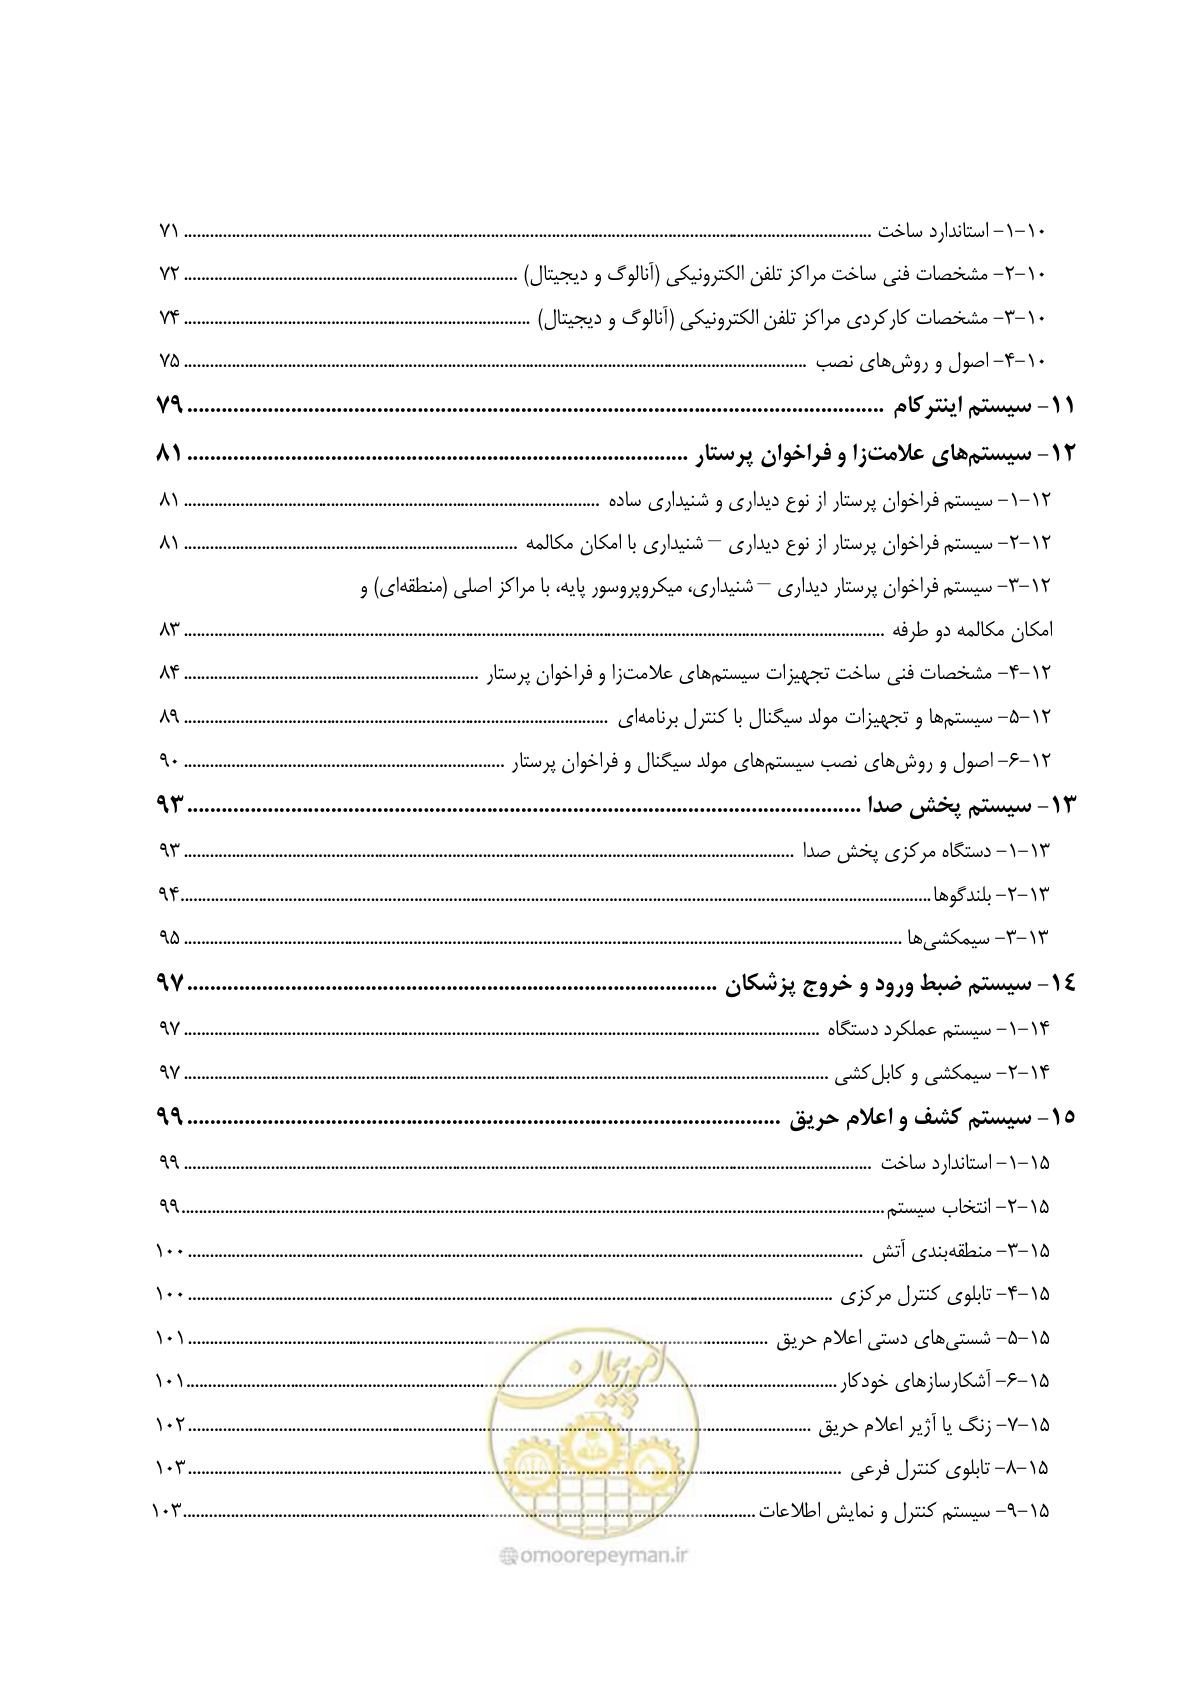 ۱۰-۱- استاندارد ساخت ........ ۷۱
۱۰-۲- مشخصات فنی ساخت مراکز تلفن الکترونیکی (آنالوگ و دیجیتال) ........ ۷۲
۱۰-۳- مشخصات کارکردی مراکز تلفن الکترونیکی (آنالوگ و دیجیتال) ........ ۷۴
۱۰-۴- اصول و روش‌های نصب ........ ۷۵
۱۱- سیستم اینترکام ........ ۷۹
۱۲- سیستم‌های علامت‌زا و فراخوان پرستار ........ ۸۱
۱۲-۱- سیستم فراخوان پرستار از نوع دیداری و شنیداری ساده ........ ۸۱
۱۲-۲- سیستم فراخوان پرستار از نوع دیداری – شنیداری با امکان مکالمه ........ ۸۱
۱۲-۳- سیستم فراخوان پرستار دیداری – شنیداری، میکروپروسور پایه، با مراکز اصلی (منطقه‌ای) و
امکان مکالمه دو طرفه ........ ۸۳
۱۲-۴- مشخصات فنی ساخت تجهیزات سیستم‌های علامت‌زا و فراخوان پرستار ........ ۸۴
۱۲-۵- سیستم‌ها و تجهیزات مولد سیگنال با کنترل برنامه‌ای ........ ۸۹
۱۲-۶- اصول و روش‌های نصب سیستم‌های مولد سیگنال و فراخوان پرستار ........ ۹۰
۱۳- سیستم پخش صدا ........ ۹۳
۱۳-۱- دستگاه مرکزی پخش صدا ........ ۹۳
۱۳-۲- بلندگوها ........ ۹۴
۱۳-۳- سیمکشی‌ها ........ ۹۵
۱۴- سیستم ضبط ورود و خروج پزشکان ........ ۹۷
۱۴-۱- سیستم عملکرد دستگاه ........ ۹۷
۱۴-۲- سیمکشی و کابل‌کشی ........ ۹۷
۱۵- سیستم کشف و اعلام حریق ........ ۹۹
۱۵-۱- استاندارد ساخت ........ ۹۹
۱۵-۲- انتخاب سیستم ........ ۹۹
۱۵-۳- منطقه‌بندی آتش ........ ۱۰۰
۱۵-۴- تابلوی کنترل مرکزی ........ ۱۰۰
۱۵-۵- شستی‌های دستی اعلام حریق ........ ۱۰۱
۱۵-۶- آشکارسازهای خودکار ........ ۱۰۱
۱۵-۷- زنگ یا آژیر اعلام حریق ........ ۱۰۲
۱۵-۸- تابلوی کنترل فرعی ........ ۱۰۳
۱۵-۹- سیستم کنترل و نمایش اطلاعات ........ ۱۰۳
امور پیمان
@omoorepeyman.ir